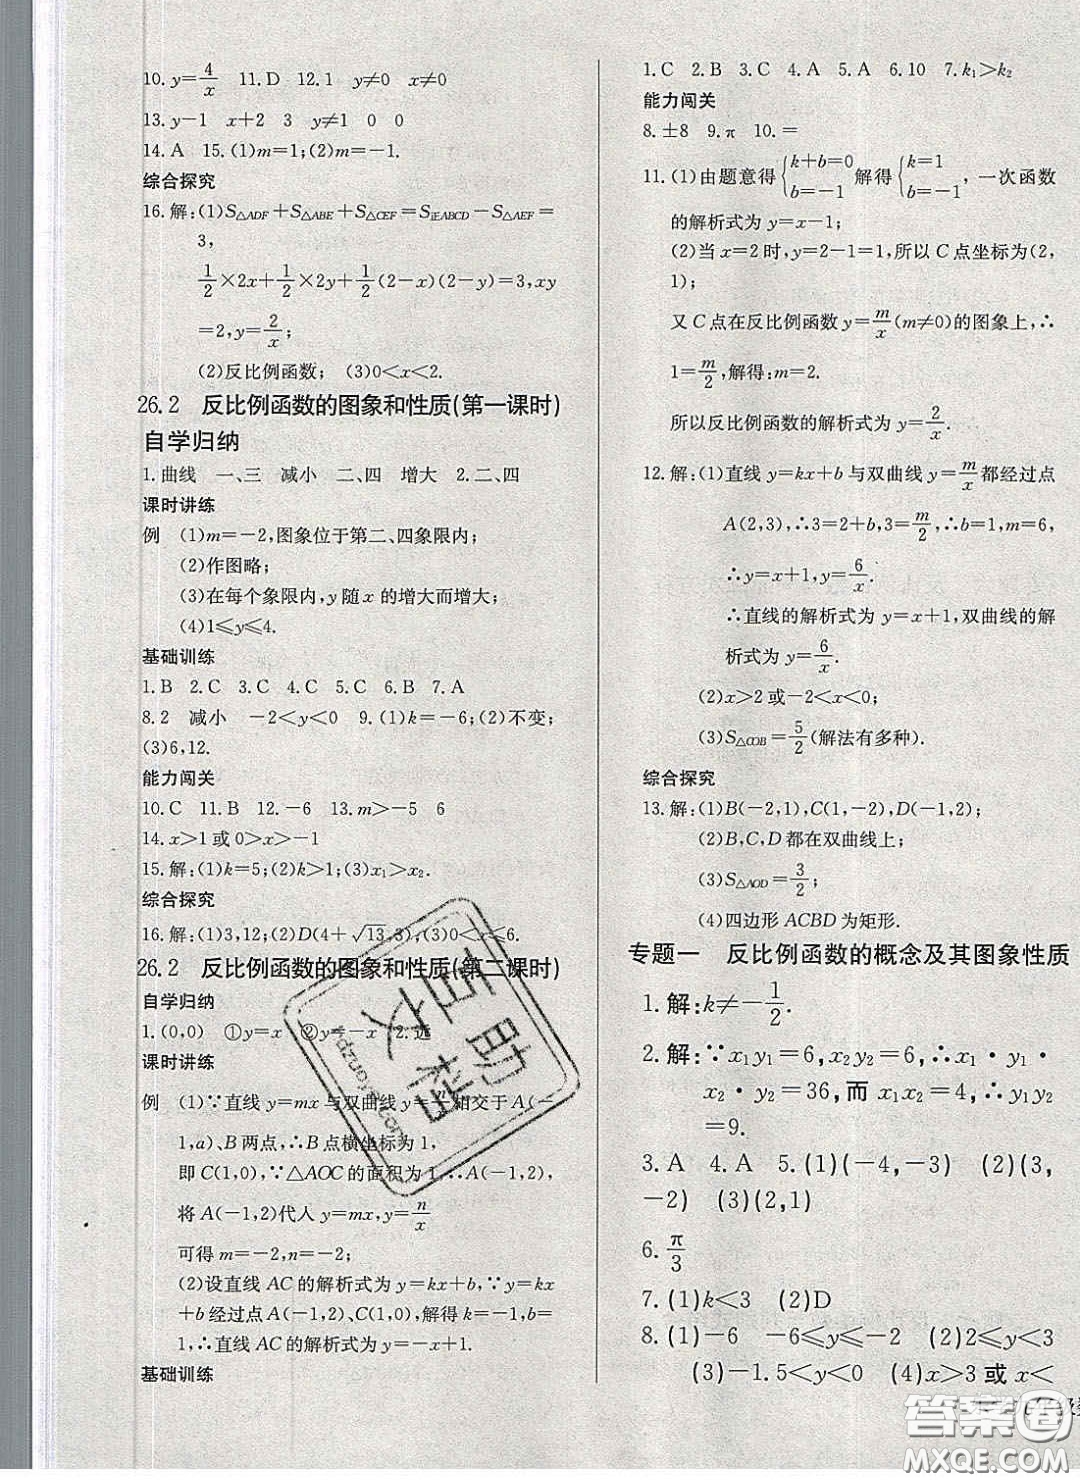 10. y=4/x　11. D　12. 1　y≠0　x≠0
13. y－1　x＋2　3　y≠1　0　0
14. A　15. (1)m=1;(2)m=－1.
综合探究
16. 解:(1)S△ADF＋S△ABE＋S△CEF=S正ABCD－S△AEF=
3,
1/2×2x＋1/2×2y＋1/2(2－x)(2－y)=3,xy
=2,y=2/x;
(2)反比例函数;　(3)0<x<2.
26.2　反比例函数的图象和性质(第一课时)
自学归纳
1. 曲线　一、三　减小　二、四　增大　2. 二、四
课时讲练
例　(1)m=－2,图象位于第二、四象限内;
(2)作图略;
(3)在每个象限内,y随x的增大而增大;
(4)1≤y≤4.
基础训练
1. B　2. C　3. C　4. C　5. C　6. B　7. A
8. 2　减小　－2<y<0　9. (1)k=－6;(2)不变;
(3)6,12.
能力闯关
10. C　11. B　12. －6　13. m>－5　6
14. x>1或0>x>－1
15. 解:(1)k=5;(2)k>1;(3)x₁>x₂.
综合探究
16. 解:(1)3,12;(2)D(4＋√13,3),(3)0<x≤6.
26.2　反比例函数的图象和性质(第二课时)
自学归纳
1. (0,0)　①y=x　②y=－x　2. 远
课时讲练
例　(1)∵直线y=mx与双曲线y=n/x相交于A(－
1,a)、B两点,∴B点横坐标为1,
即C(1,0),∵△AOC的面积为1,∴A(－1,2),
将A(－1,2)代人y=mx,y=n/x
可得m=－2,n=－2;
(2)设直线AC的解析式为y=kx＋b,∵y=kx
＋b经过点A(－1,2)、C(1,0),解得k=－1,b=
1,∴直线AC的解析式为y=－x＋1.
基础训练
1. C　2. B　3. C　4. A　5. A　6. 10　7. k₁>k₂
能力闯关
8. ±8　9. π　10. =
11. (1)由题意得{k＋b=0 b=－1 解得{k=1 b=－1, 一次函数
的解析式为y=x－1;
(2)当x=2时,y=2－1=1,所以C点坐标为(2,
1);
又C点在反比例函数y=m/x(m≠0)的图象上,∴
1=m/2,解得:m=2.
所以反比例函数的解析式为y=2/x.
12. 解:(1)直线y=kx＋b与双曲线y=m/x都经过点
A(2,3),∴3=2＋b,3=m/2,∴b=1,m=6,
∴y=x＋1,y=6/x.
∴直线的解析式为y=x＋1,双曲线的解
析式为y=6/x.
(2)x>2或－2<x<0;
(3)S△COB=5/2(解法有多种).
综合探究
13. 解:(1)B(－2,1),C(1,－2),D(－1,2);
(2)B,C,D都在双曲线上;
(3)S△AOD=3/2;
(4)四边形ACBD为矩形.
专题一　反比例函数的概念及其图象性质
1. 解:k≠－1/2.
2. 解:∵x₁y₁=6,x₂y₂=6,∴x₁·y₁·
x₂·y₂=36,而x₁x₂=4,∴y₁y₂
=9.
3. A　4. A　5. (1)(－4,－3)　(2)(3,
－2)　(3)(2,1)
6. π/3
7. (1)k<3　(2)D
8. (1)－6　－6≤y≤－2　(2)2≤y<3
(3)－1.5<y<0　(4)x>3或x<
答案圈
MXQE.COM